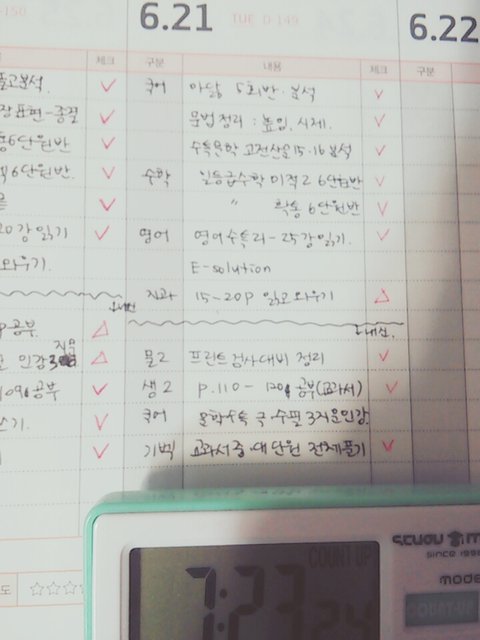 -150
6.21
TUE D-149
6.22
체크
구분
내용
체크
구분
국어 아닮 5회반·분석
문법정리 : 높임, 시제.
수특문학 고전산문 15·16 분석
수학 일등급수학 미적2 6단원반
" 확통 6단원반
영어 영어수특리-25강읽기.
E-solution
지과 15-20p 읽고외우기
↳내신.
물2 프린트검사대비 정리
생2 p.110- 공부(교과서)
국어 문학수특 극·수필 3지문인강.
기벡 교과서 중·대단원 전체풀기
20강읽기
외우기.
↳내신
공부
지문
인강
109p 공부
COUNT UP
7:23 24
since 1998
mode
COUNT-UP